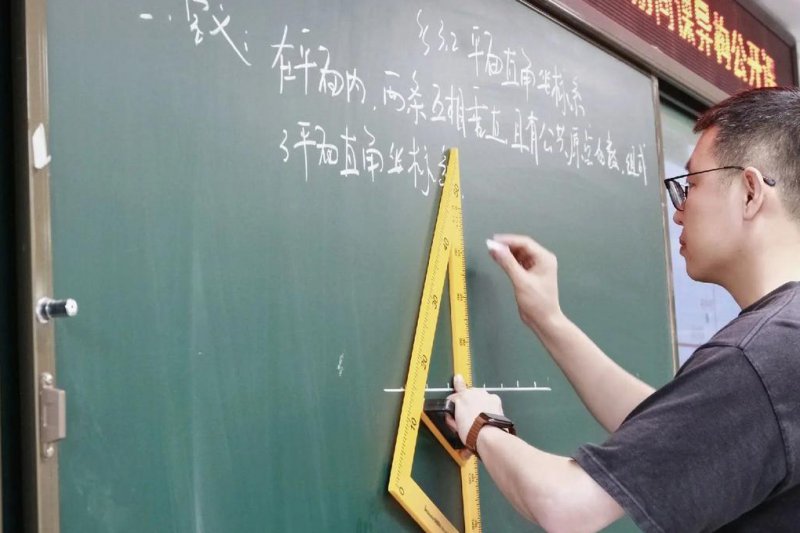 §3.2 平面直角坐标系
一、定义:
在平面内,两条互相垂直且有公共原点的数轴组成
了平面直角坐标系
课异构公开课